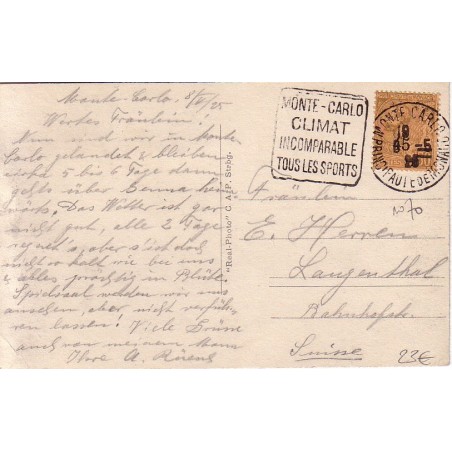 Monte-Carlo, 8/5/25
Wertes Fräulein!
Nun sind wir in Monte
Carlo gelandet & bleiben
circa 5 bis 6 Tage dann
gehts über Genua heim
wärts. Das Wetter ist gar
nicht gut, alle 2 Tage
regnet's, aber s'ist doch
nicht so kalt wie bei uns
& alles prächtig in Blüte.
Spielsaal werden wir uns
ansehen, aber nicht verfüh-
ren lassen! Viele Grüsse
auch von meinem Mann
Ihre A.
"Real-Photo" C. A. P. Strbg.
MONTE-CARLO
CLIMAT
INCOMPARABLE
TOUS LES SPORTS
MONTE CARLO
PRINCIPAUTE DE MONACO
18
5-5
25
no 70
Fräulein
E. Herren
Langenthal
Bahnhofstr.
Suisse
23€